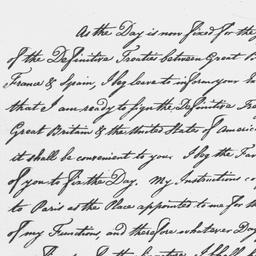 As the Day is now fixed for the
of the Definitive Treaties between Great
France & Spain, I beg leave to inform your
that I am ready to sign the Definitive
Great Britain & the United States of America
it shall be convenient to you. I beg the
of you to fix the Day. My Instructions
to Paris as the Place appointed to me for
of my Functions, and therefore whatever Day